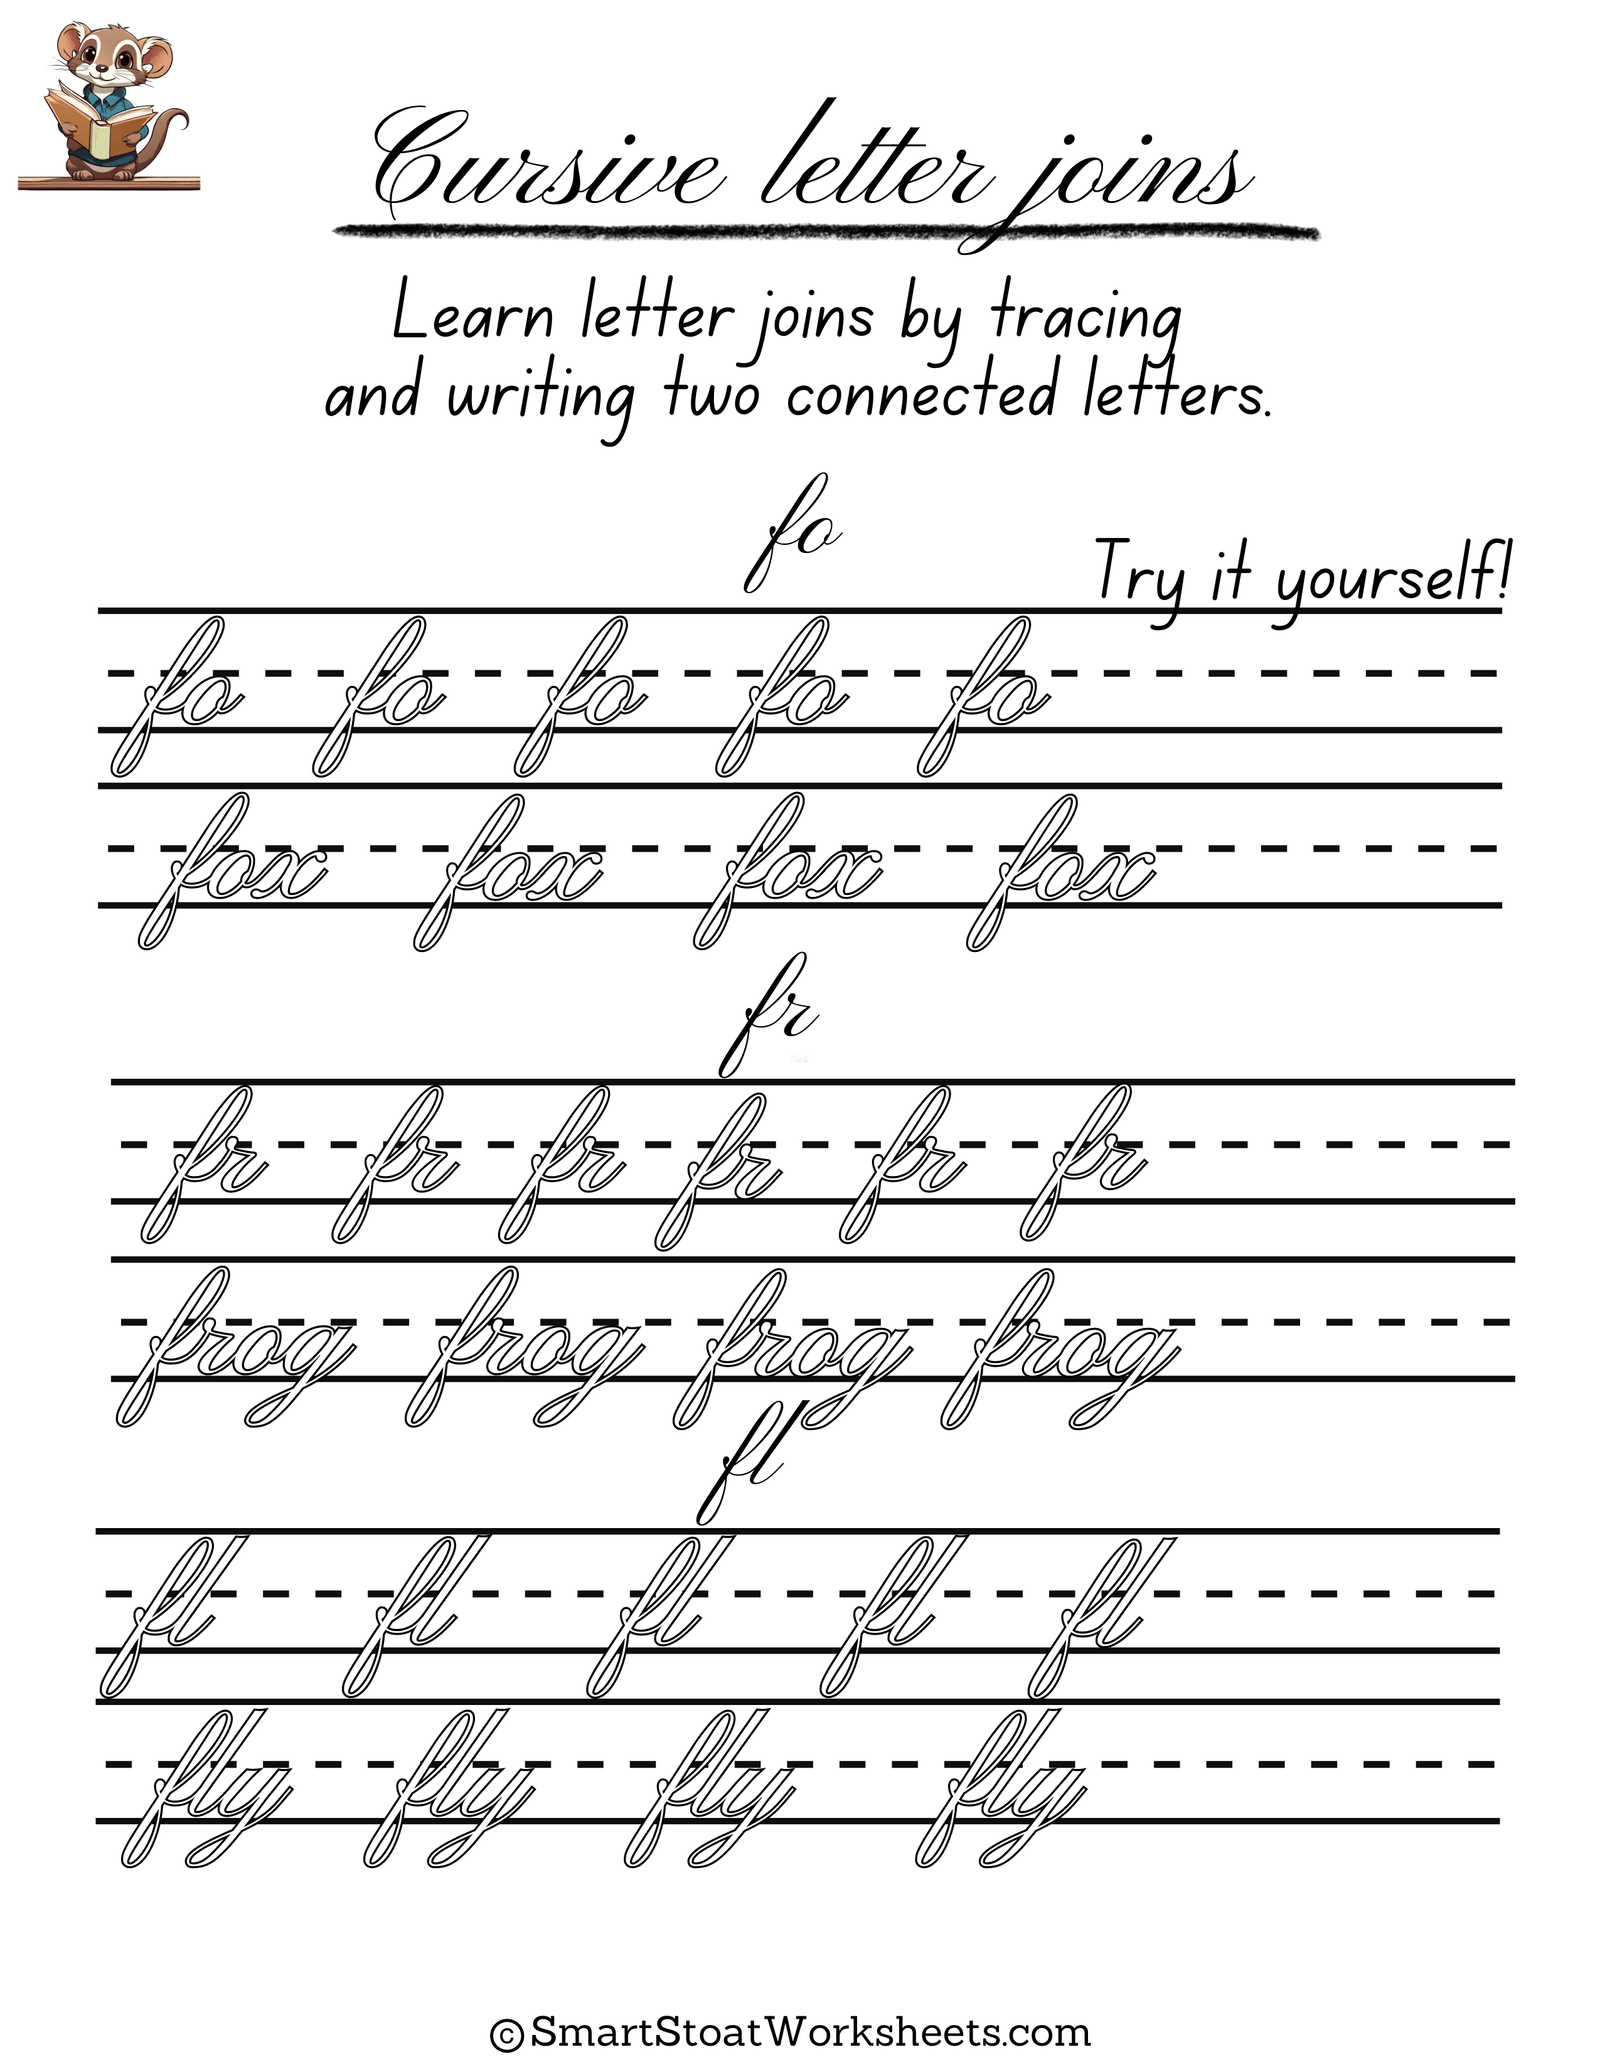 Cursive letter joins
Learn letter joins by tracing
and writing two connected letters.
fo
Try it yourself!
fo fo fo fo fo
fox fox fox fox
fr
fr fr fr fr fr fr
frog frog frog frog
fl
fl fl fl fl fl
fly fly fly fly
©SmartStoatWorksheets.com